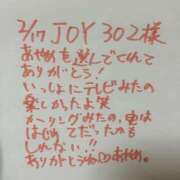 2/17 JOY 302様
あやめを選んでくれて
ありがとう!
いっしょにテレビみたの
楽しかったよ笑
メーリングみたの、実は
はじめてだったのも
しんない!!
ありがとうね♡あやめ。